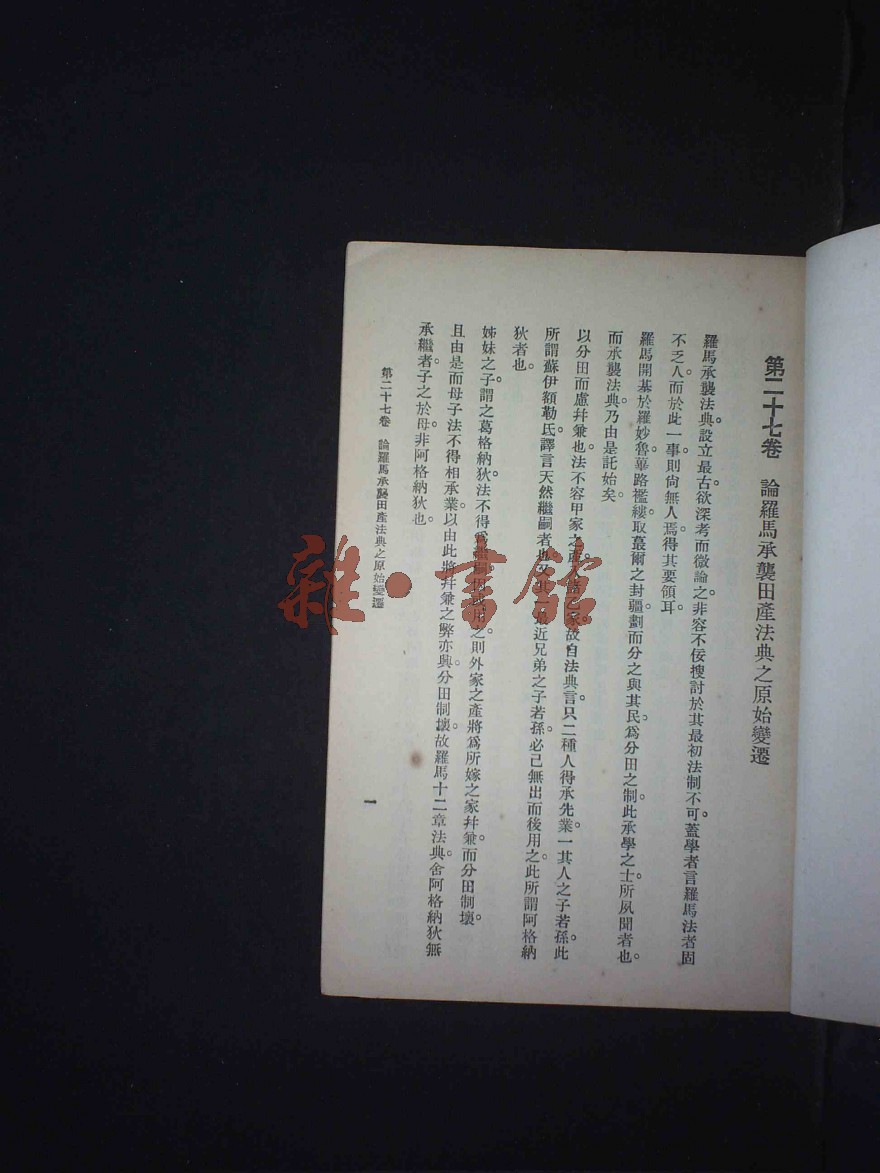 第二十七卷　論羅馬承襲田產法典之原始變遷
羅馬承襲法典。設立最古。欲深考而微論之。非容不佞搜討於其最初法制不可。蓋學者言羅馬法者。固
不乏人。而於此一事。則尙無人焉得其要領耳。
羅馬開基於羅妙魯。篳路襤縷。取蕞爾之封疆。劃而分之。與其民爲分田之制。此承學之士所夙聞者也。
而承襲法典。乃由是託始矣。
以分田而慮幷兼也。法不容甲家之產。家。故自法典言。只二種人得承先業。一其人之子若孫。此
所謂蘇伊額勒氏。譯言天然繼嗣者也。最近兄弟之子若孫。必己無出而後用之。此所謂阿格納
狄者也。
姊妹之子。謂之葛格納狄。法不得爲之。則外家之產。將爲所嫁之家幷兼。而分田制壞。
且由是而母子法不得相承業。以由此將幷兼之弊亦興。分田制壞。故羅馬十二章法典。舍阿格納狄無
承繼者。子之於母。非阿格納狄也。
第二十七卷　論羅馬承襲田產法典之原始變遷
一
雜·書館